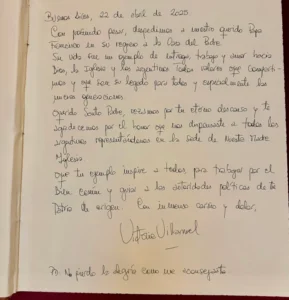 Buenos Aires, 22 de abril de 2025
Con profundo pesar, despedimos a nuestro querido Papa
Francisco en su regreso a la Casa del Padre.
Su vida fue un ejemplo de entrega, trabajo y amor hacia
Dios, la Iglesia y los argentinos todos valores que comparti-
mos y que son su legado para todos y especialmente las
nuevas generaciones.
Querido Santo Padre, rezamos por tu eterno descanso y te
agradecemos por el honor que nos dispensaste a todos los
argentinos representándonos en la Sede de Nuestra Madre
Iglesia
Que tu ejemplo inspire a todos para trabajar por el
Bien común y guíe a las autoridades políticas de tu
Patria de origen. Con inmenso cariño y dolor,
Victoria Villarruel
No pierdo la alegría como me